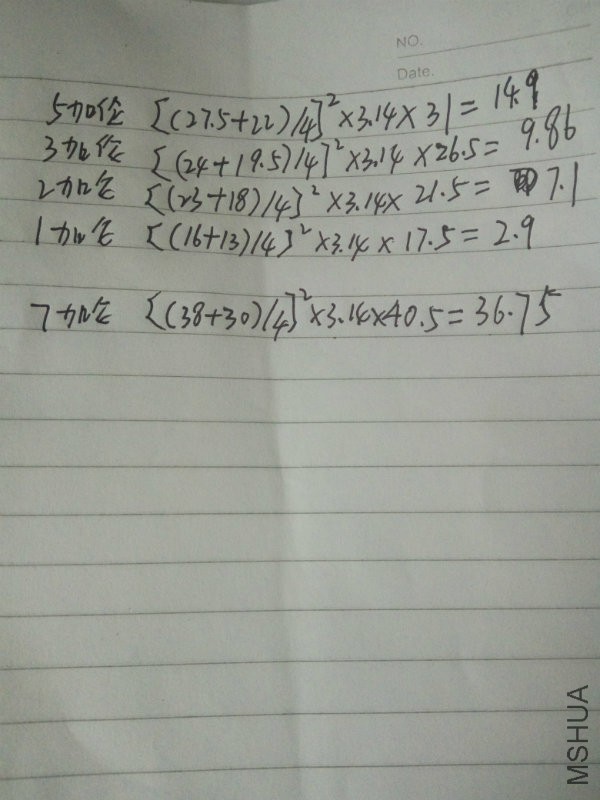 NO.
Date.
5加仑 [(27.5+22)/4]²×3.14×31=14.9
3加仑 [(24+19.5)/4]²×3.14×26.5=9.86
2加仑 [(23+18)/4]²×3.14×21.5=7.1
1加仑 [(16+13)/4]²×3.14×17.5=2.9
7加仑 [(38+30)/4]²×3.14×40.5=36.75
MSHUA